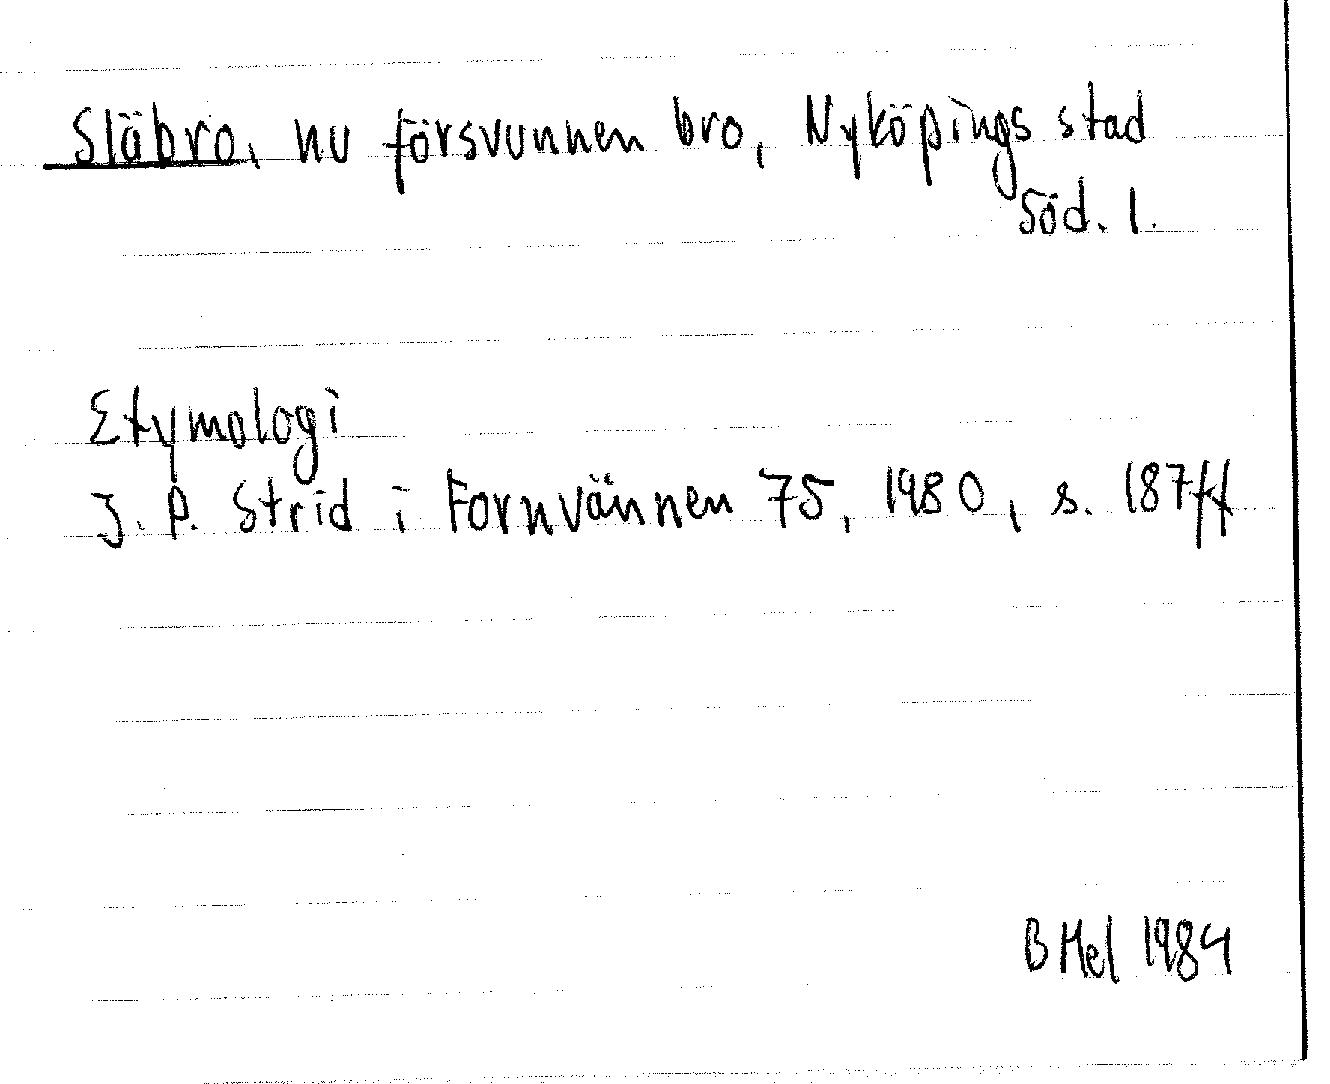 Släbro, nu försvunnen bro, Nyköpings stad
Söd. l.
Etymologi
J. P. Strid i Fornvännen 75, 1980, s. 187ff
B Hel 1984